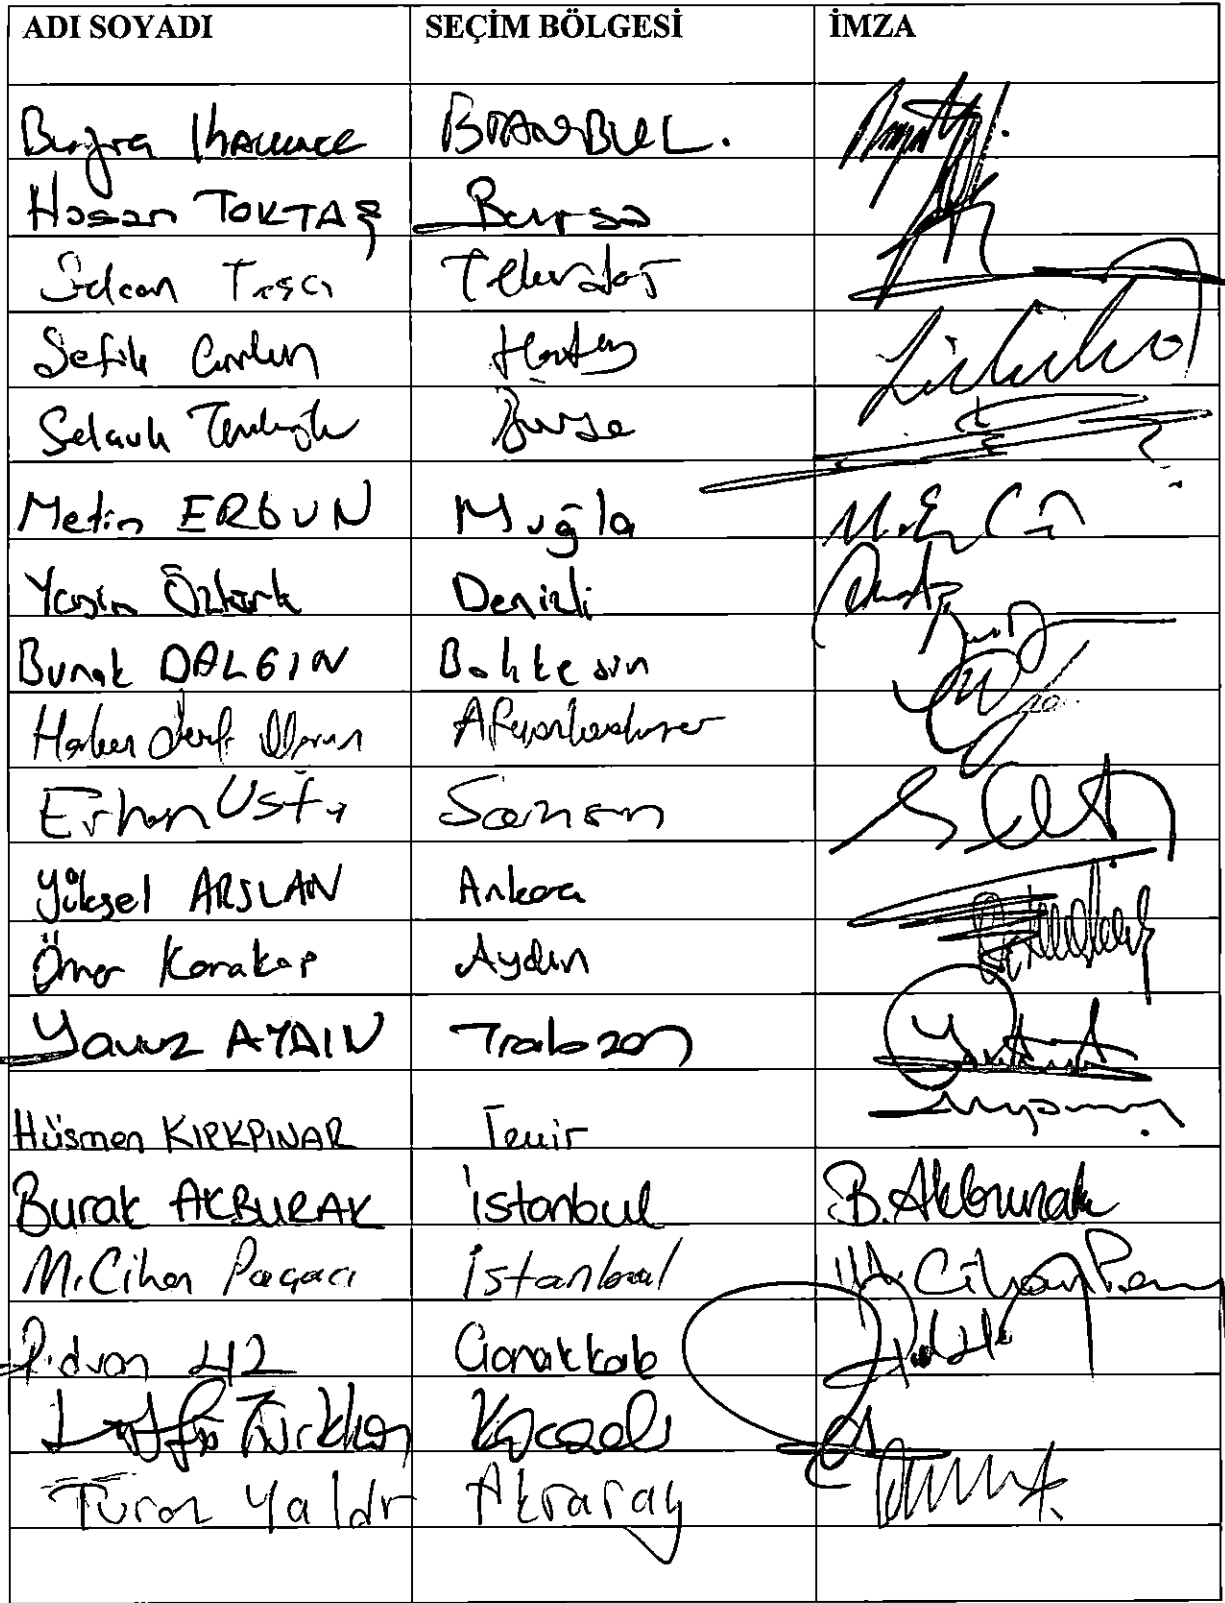 ADI SOYADI SEÇİM BÖLGESİ İMZA
Buğra Kavuncu İSTANBUL.
Hasan TOKTAŞ Bursa
Selcan Taşcı Tekirdağ
Şefik Çirkin Hatay
Selçuk Türkoğlu Bursa
Metin ERGUN Muğla M.E
Yasin Öztürk Denizli
Burak DALGIN Balıkesir
Hakan Şeref Olgun Afyonkarahisar
Erhan Usta Samsun
Yüksel ARSLAN Ankara
Ömer Karakaş Aydın
Yavuz AYDIN Trabzon
Hüsmen KIRKPINAR İzmir
Burak AKBURAK İstanbul B.Akburak
M.Cihan Paçacı İstanbul M.Cihan
Rıdvan UZ Çanakkale
Lütfü Türkkan Kocaeli
Turan Yaldır Aksaray